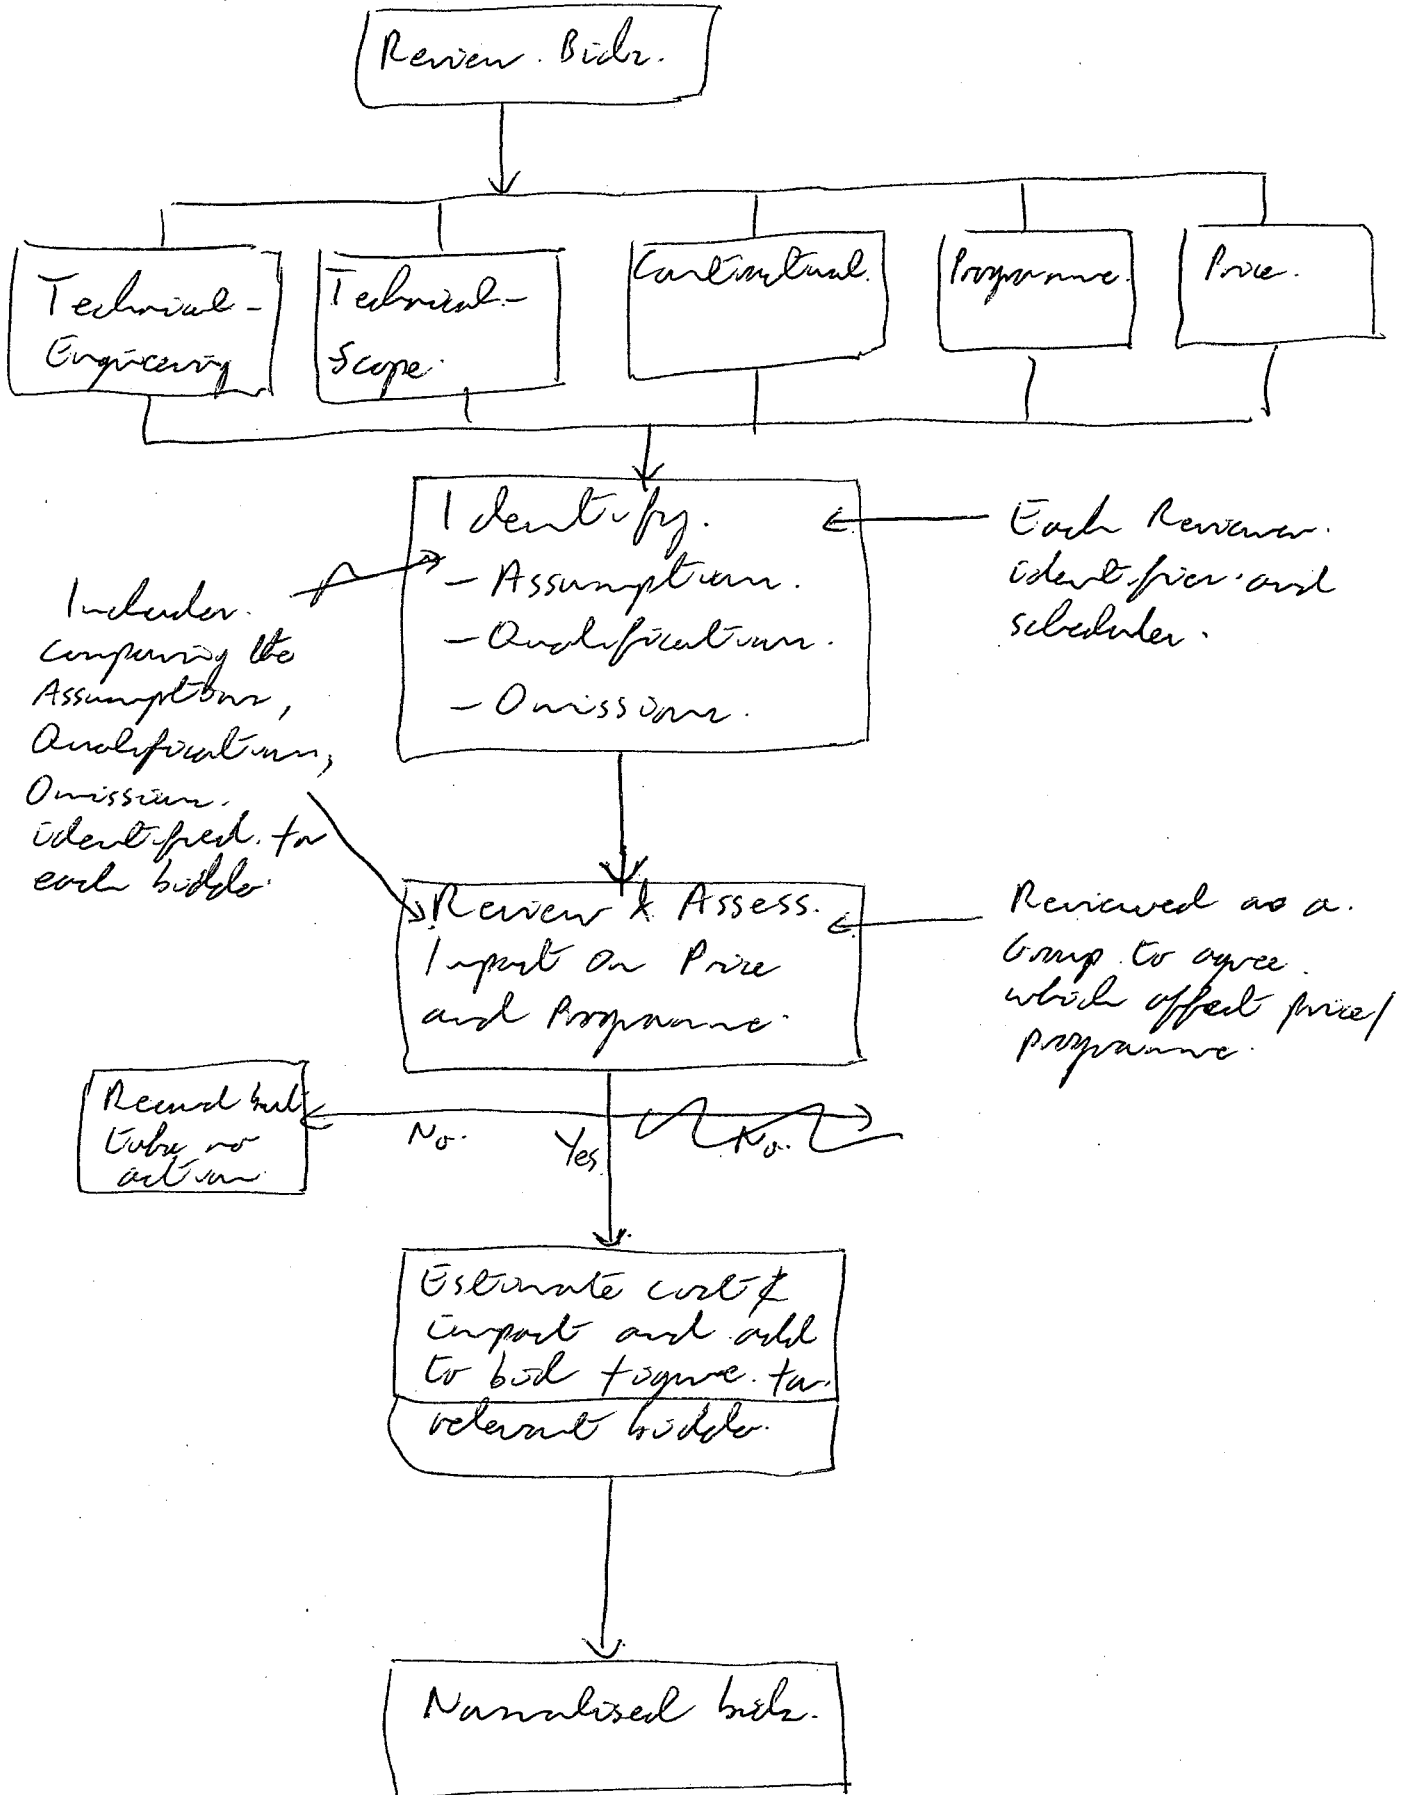 Review Bids.
Technical -
Engineering
Technical -
Scope.
Contractual.
Programme.
Price.
Identify.
- Assumptions.
- Qualifications.
- Omissions.
Each Reviewer.
identifies and
schedules.
Includes.
comparing the
Assumptions,
Qualifications,
Omissions.
identified for
each bidder.
Review & Assess.
Impact on Price
and Programme.
Reviewed as a.
Group to agree.
which affect price/
programme.
Record but
take no
action
No.
Yes
No.
Estimate cost
impact and add
to bid figure for
relevant bidder.
Normalised bids.